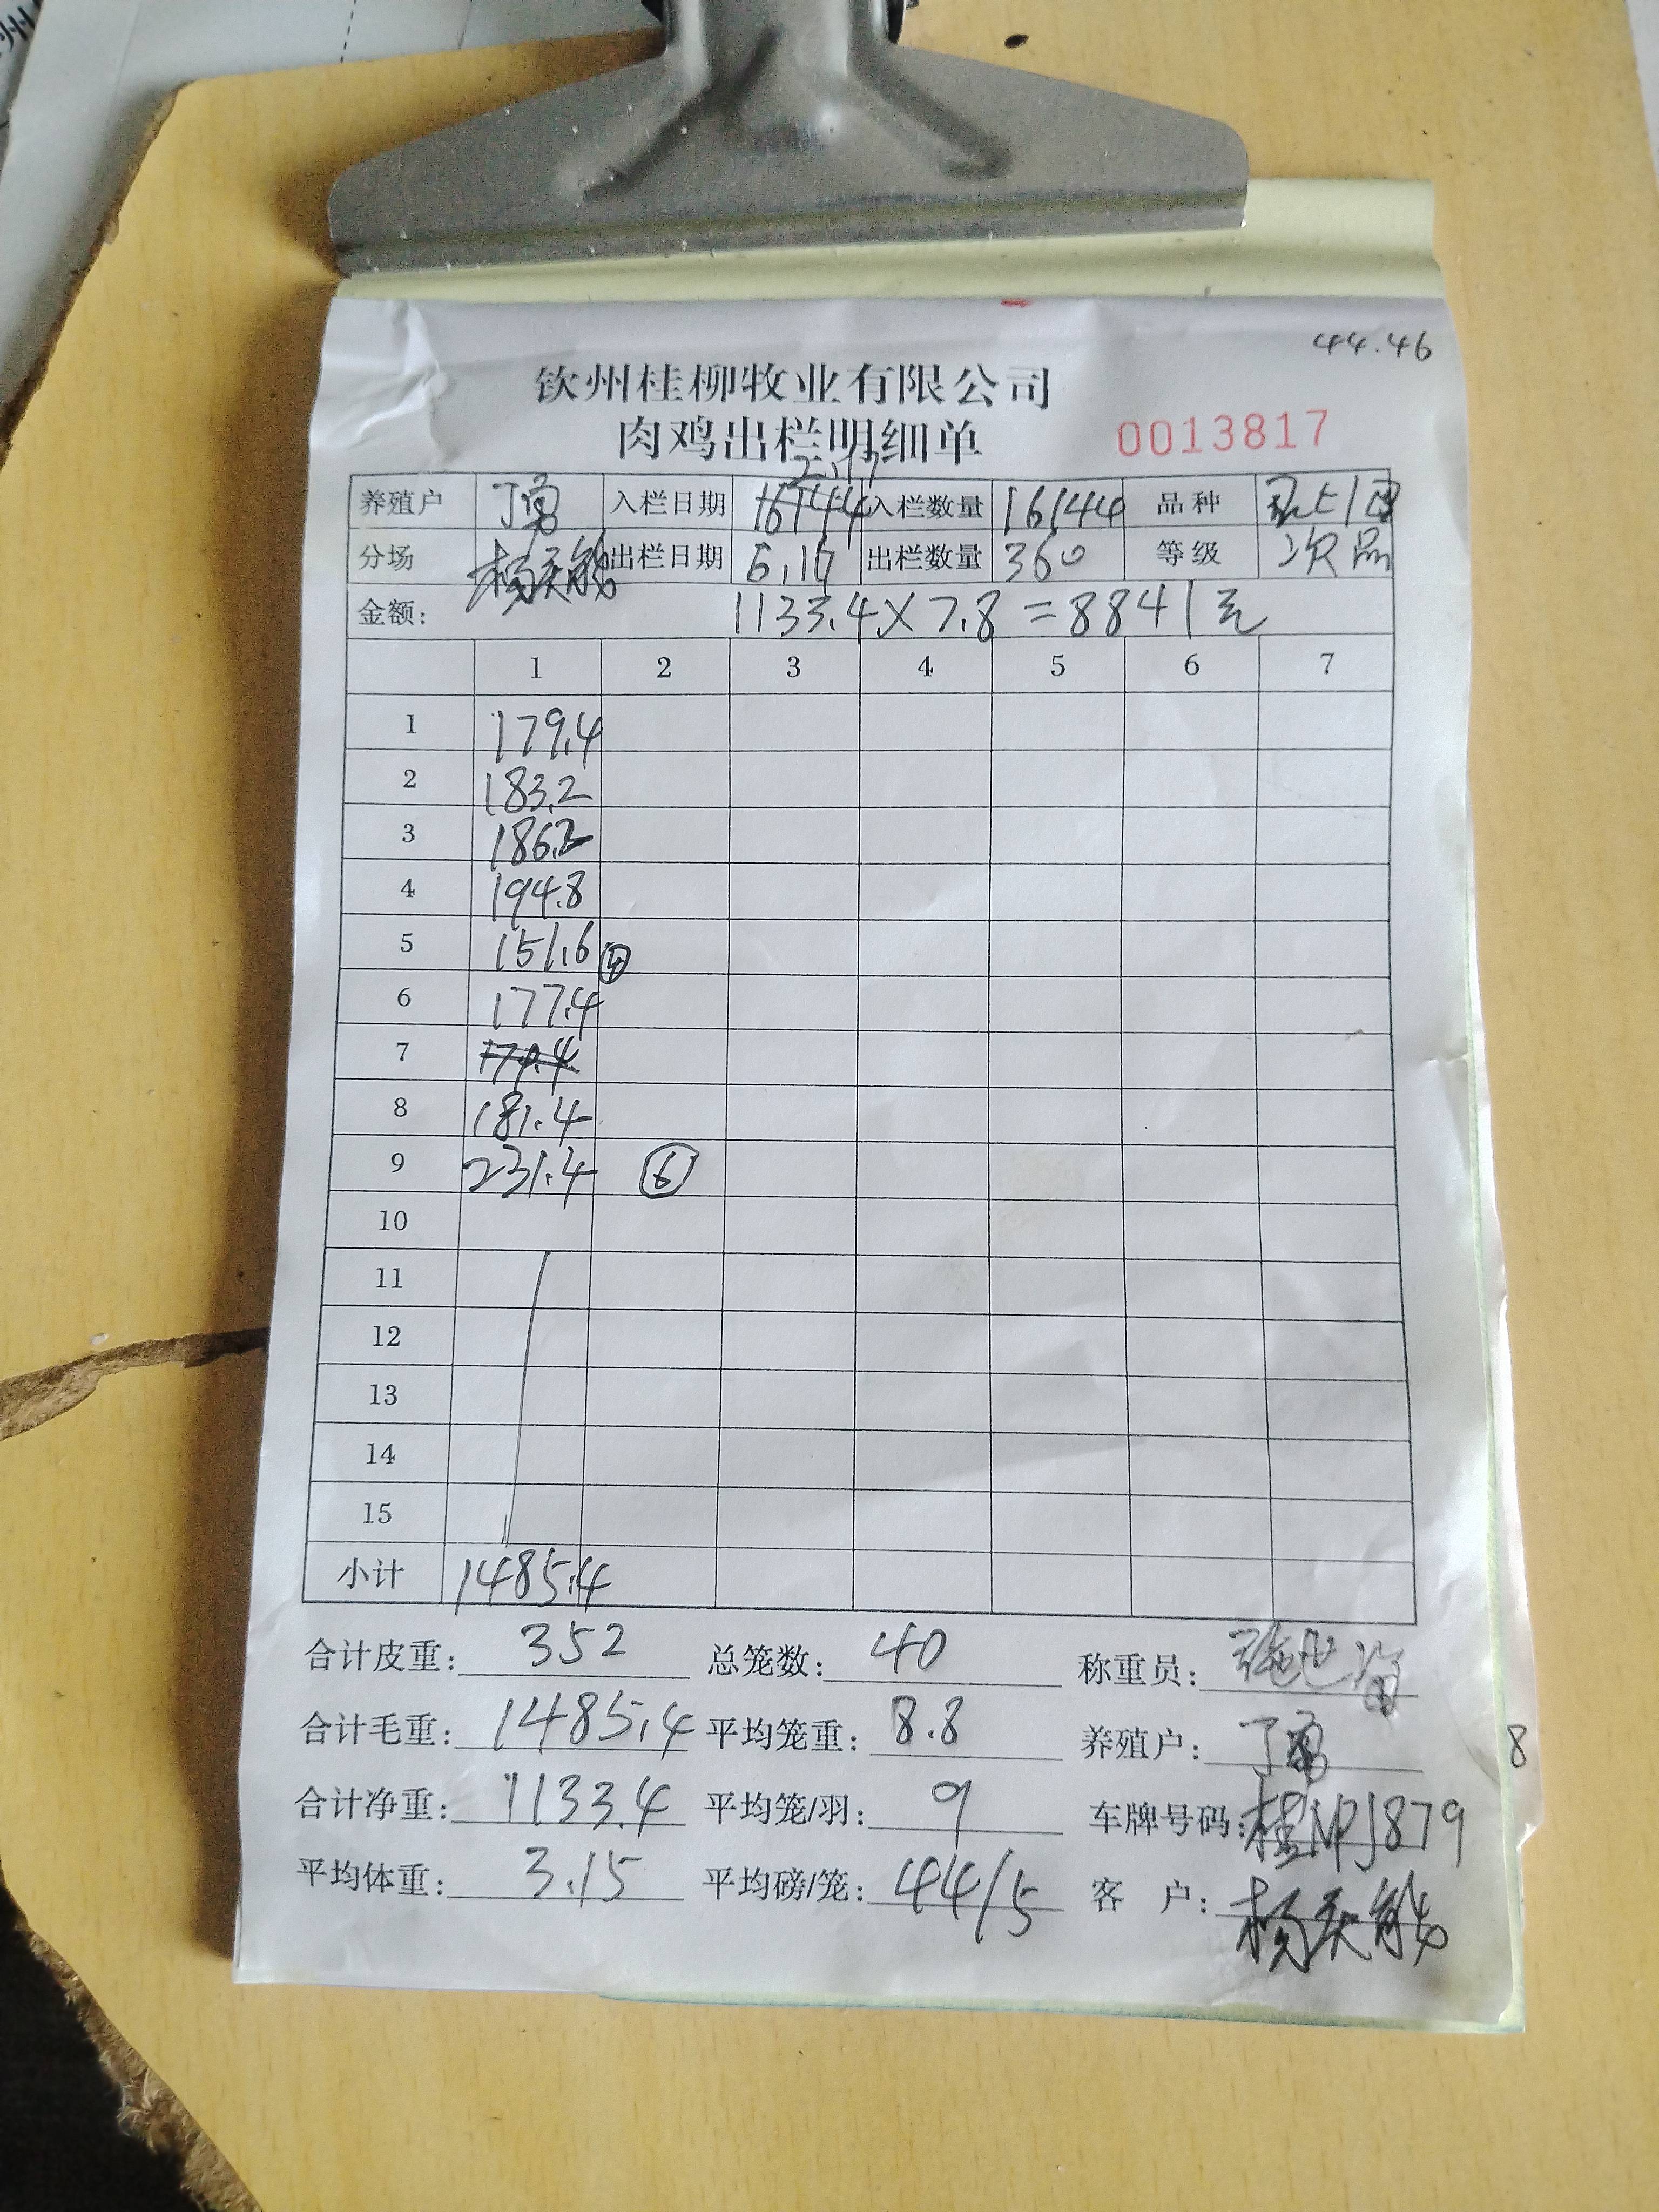 44.46
钦州桂柳牧业有限公司
肉鸡出栏明细单 0013817
2.17
养殖户 丁勇 入栏日期 16144 入栏数量 16144 品种
分场 杨天能 出栏日期 5.16 出栏数量 360 等级 次品
金额: 1133.4×7.8=8841元
1 2 3 4 5 6 7
1 179.4
2 183.2
3 186.2
4 194.8
5 151.6 ④
6 177.4
7 179.4
8 181.4
9 231.4 ⑥
10
11
12
13
14
15
小计 1485.4
合计皮重: 352 总笼数: 40 称重员:
合计毛重: 1485.4 平均笼重: 8.8 养殖户: 丁勇
8
合计净重: 1133.4 平均笼/羽: 9 车牌号码: 桂NPJ879
平均体重: 3.15 平均磅/笼: 44/5 客户: 杨天能